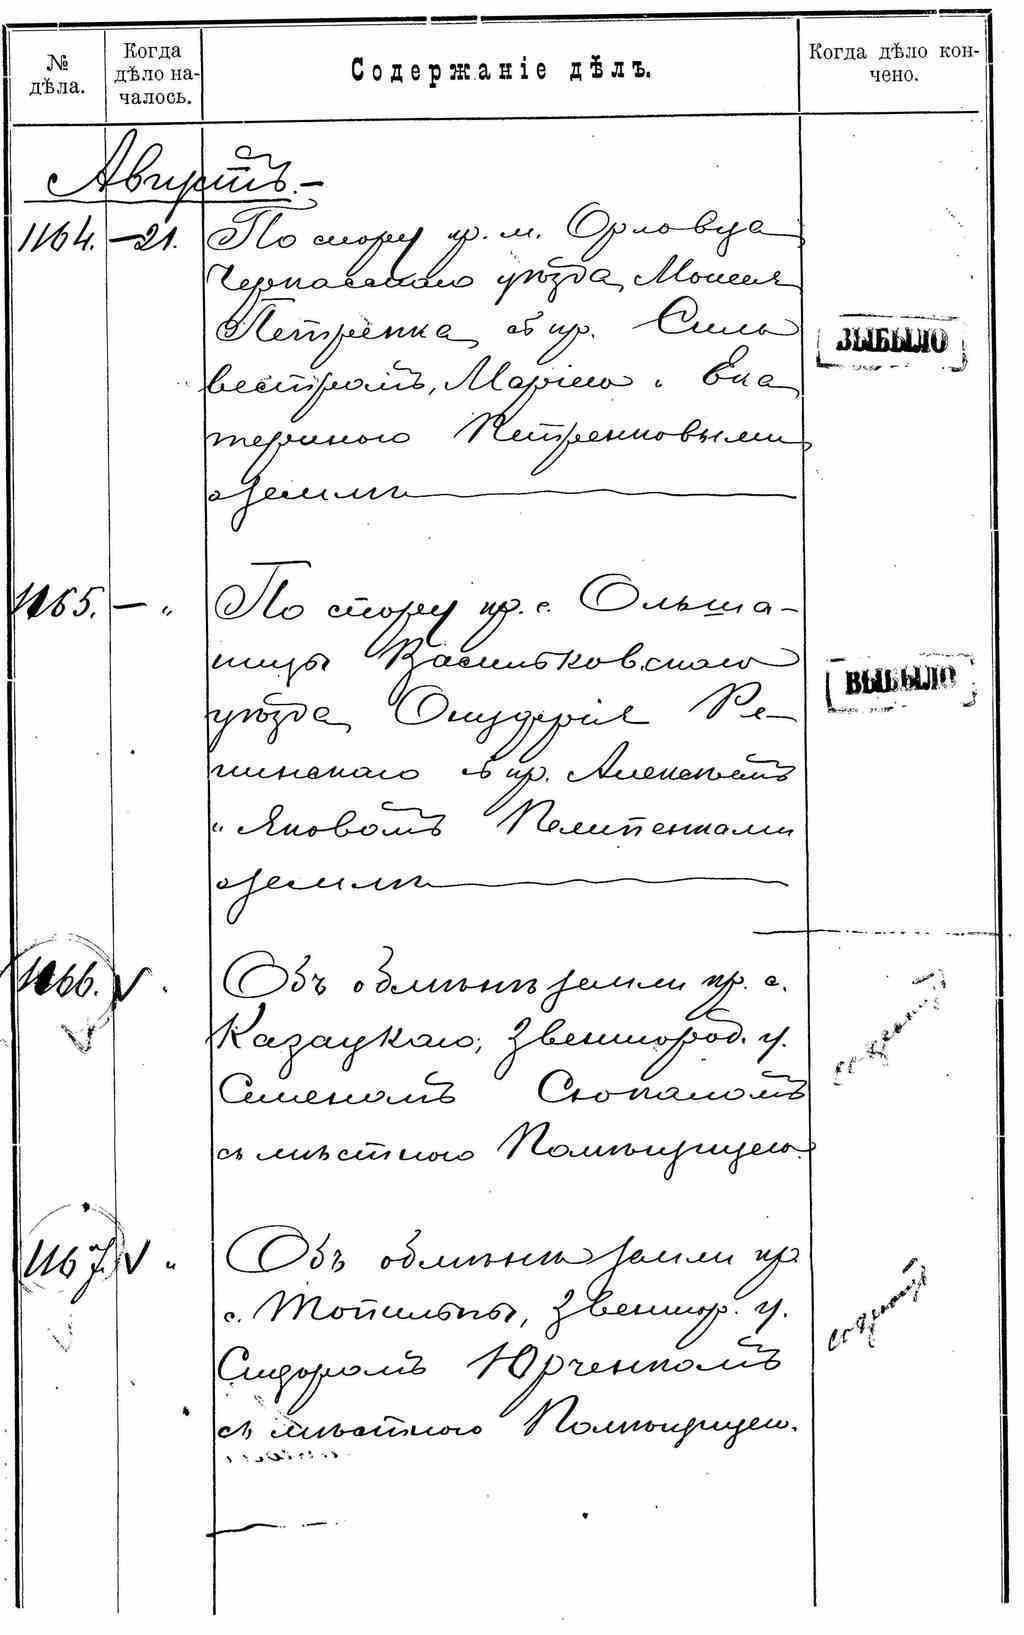 № дѣла.
Когда дѣло на-
чалось.
Содержаніе дѣлъ.
Когда дѣло кон-
чено.
Августъ.—
1164. —21. По спору кр. м. Орловца
Черкасскаго уѣзда Моисея
Петренка съ кр. Силь
вестромъ, Маріею и Ека
териною Петренковыми
о землѣ
ВЫБЫЛО
1165. — „ По спору кр. с. Ольша-
ницы Васильковскаго
уѣзда Онуфрія Ре-
пинскаго съ кр. Алексѣемъ
и Яковомъ
о землѣ
ВЫБЫЛО
1166. V „ Объ обмѣнѣ земли кр. с.
Казацкаго, Звенигород. у.
Семеномъ
съ мѣстною Помѣщицею.
1167. V „ Объ обмѣнѣ земли кр
с. Топильны, Звенигор. у.
Сидоромъ Юрченкомъ
съ мѣстною Помѣщицею.